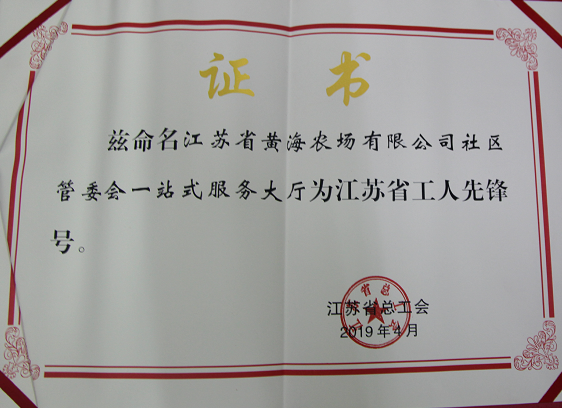 证书
兹命名江苏省黄海农场有限公司社区
管委会一站式服务大厅为江苏省工人先锋
号。
江苏省总工会
2019年4月